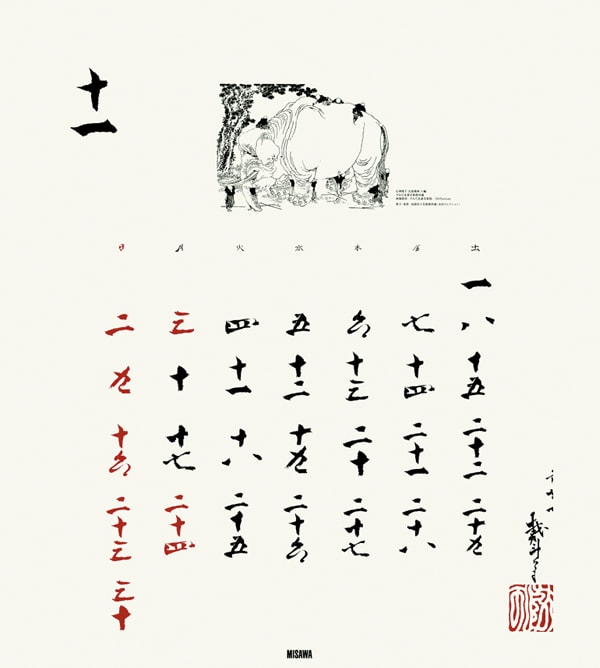 十一
日 月 火 水 木 金 土
一
二 三 四 五 六 七 八
九 十 十一 十二 十三 十四 十五
十六 十七 十八 十九 二十 二十一 二十二
二十三 二十四 二十五 二十六 二十七 二十八 二十九
三十
MISAWA